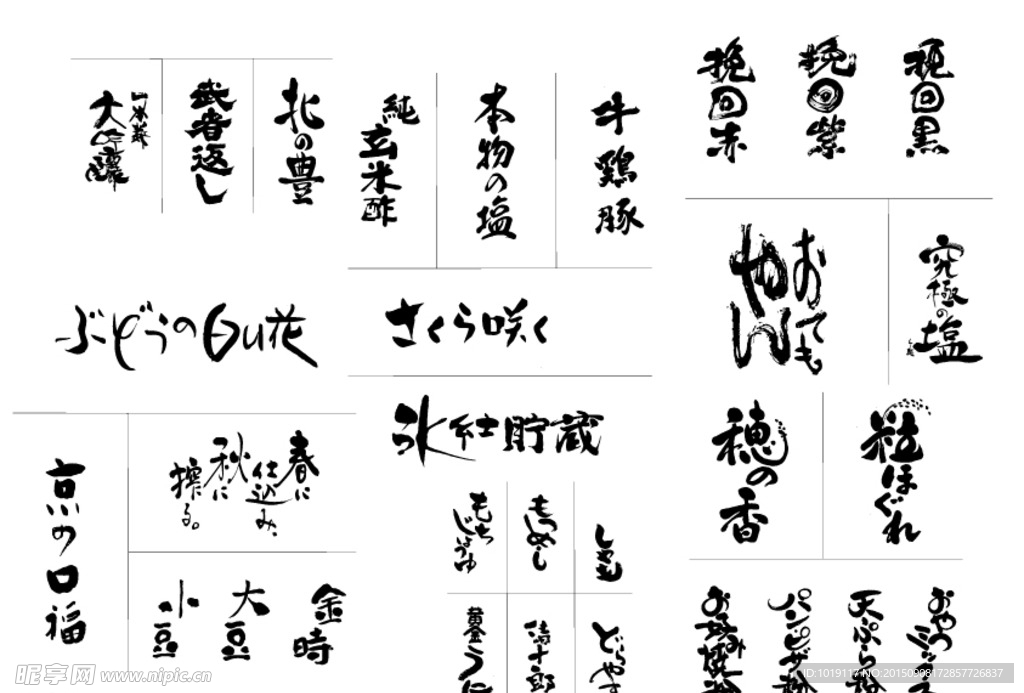 一本義
大吟醸
武者返し
北の豊
純
玄米酢
本物の塩
牛鶏豚
挽回赤
挽回紫
挽回黒
ぶどうの白い花
さくら咲く
おても
やん
究極の塩
氷結貯蔵
京の口福
春に
仕込み、
秋に
搾る。
小豆
大豆
金時
もち
しょうゆ
もつめし
穂の香
粒ほぐれ
どらやき
お好み焼粉
パンピザ粉
天ぷら粉
おやつ
ミックス
昵享网 www.nipic.cn
ID:1019117 NO:20150908172857726837